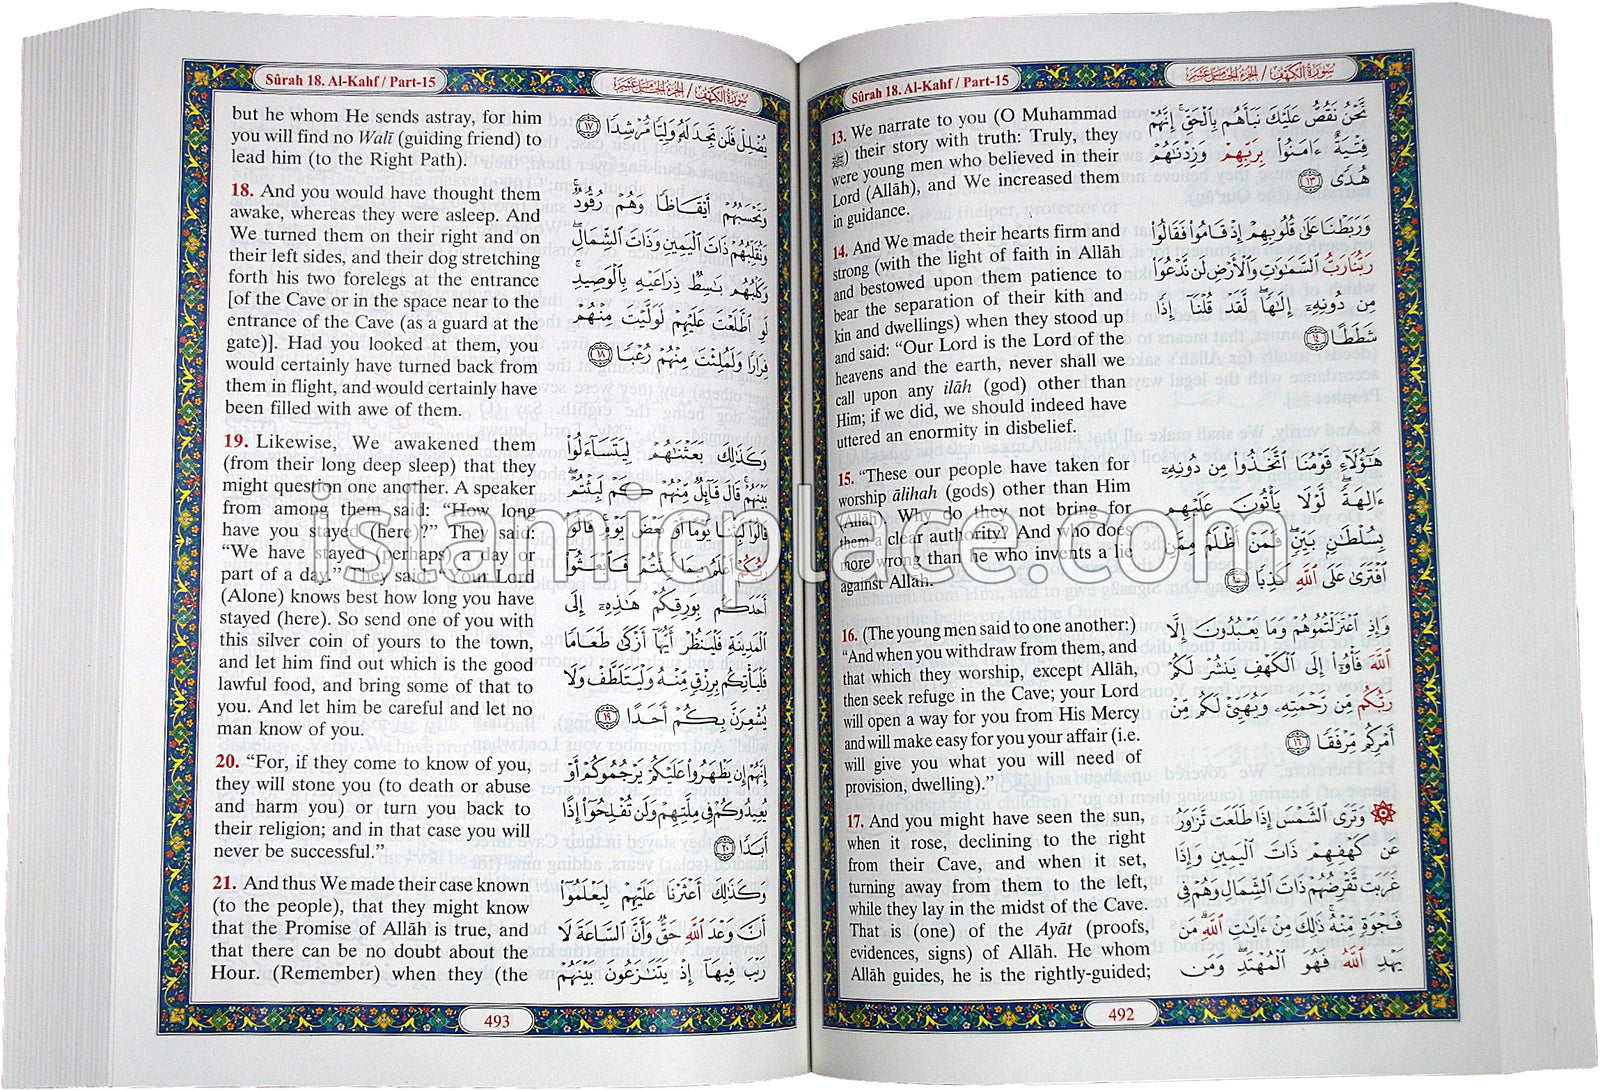 Sûrah 18. Al-Kahf / Part-15
سورة الكهف / الجزء الخامس عشر
13. We narrate to you (O Muhammad
ﷺ) their story with truth: Truly, they
were young men who believed in their
Lord (Allâh), and We increased them
in guidance.
14. And We made their hearts firm and
strong (with the light of faith in Allâh
and bestowed upon them patience to
bear the separation of their kith and
kin and dwellings) when they stood up
and said: “Our Lord is the Lord of the
heavens and the earth, never shall we
call upon any ilâh (god) other than
Him; if we did, we should indeed have
uttered an enormity in disbelief.
15. “These our people have taken for
worship âlihah (gods) other than Him
(Allâh). Why do they not bring for
them a clear authority? And who does
more wrong than he who invents a lie
against Allâh.
16. (The young men said to one another:)
“And when you withdraw from them, and
that which they worship, except Allâh,
then seek refuge in the Cave; your Lord
will open a way for you from His Mercy
and will make easy for you your affair (i.e.
will give you what you will need of
provision, dwelling).”
17. And you might have seen the sun,
when it rose, declining to the right
from their Cave, and when it set,
turning away from them to the left,
while they lay in the midst of the Cave.
That is (one) of the Ayât (proofs,
evidences, signs) of Allâh. He whom
Allâh guides, he is the rightly-guided;
نَّحْنُ نَقُصُّ عَلَيْكَ نَبَأَهُم بِالْحَقِّ ۚ إِنَّهُمْ
فِتْيَةٌ ءَامَنُوا۟ بِرَبِّهِمْ وَزِدْنَٰهُمْ
هُدًى ١٣
وَرَبَطْنَا عَلَىٰ قُلُوبِهِمْ إِذْ قَامُوا۟ فَقَالُوا۟
رَبُّنَا رَبُّ ٱلسَّمَٰوَٰتِ وَٱلْأَرْضِ لَن نَّدْعُوَا۟
مِن دُونِهِۦٓ إِلَٰهًا ۖ لَّقَدْ قُلْنَآ إِذًا
شَطَطًا ١٤
هَٰٓؤُلَآءِ قَوْمُنَا ٱتَّخَذُوا۟ مِن دُونِهِۦٓ
ءَالِهَةً ۖ لَّوْلَا يَأْتُونَ عَلَيْهِم
بِسُلْطَٰنٍۭ بَيِّنٍ ۖ فَمَنْ أَظْلَمُ مِمَّنِ
ٱفْتَرَىٰ عَلَى ٱللَّهِ كَذِبًا ١٥
وَإِذِ ٱعْتَزَلْتُمُوهُمْ وَمَا يَعْبُدُونَ إِلَّا
ٱللَّهَ فَأْوُۥٓا۟ إِلَى ٱلْكَهْفِ يَنشُرْ لَكُمْ
رَبُّكُم مِّن رَّحْمَتِهِۦ وَيُهَيِّئْ لَكُم مِّنْ
أَمْرِكُم مِّرْفَقًا ١٦
۞ وَتَرَى ٱلشَّمْسَ إِذَا طَلَعَت تَّزَٰوَرُ
عَن كَهْفِهِمْ ذَاتَ ٱلْيَمِينِ وَإِذَا
غَرَبَت تَّقْرِضُهُمْ ذَاتَ ٱلشِّمَالِ وَهُمْ فِى
فَجْوَةٍ مِّنْهُ ۚ ذَٰلِكَ مِنْ ءَايَٰتِ ٱللَّهِ ۗ مَن
يَهْدِ ٱللَّهُ فَهُوَ ٱلْمُهْتَدِ ۖ وَمَن
492
Sûrah 18. Al-Kahf / Part-15
سورة الكهف / الجزء الخامس عشر
but he whom He sends astray, for him
you will find no Walî (guiding friend) to
lead him (to the Right Path).
18. And you would have thought them
awake, whereas they were asleep. And
We turned them on their right and on
their left sides, and their dog stretching
forth his two forelegs at the entrance
[of the Cave or in the space near to the
entrance of the Cave (as a guard at the
gate)]. Had you looked at them, you
would certainly have turned back from
them in flight, and would certainly have
been filled with awe of them.
19. Likewise, We awakened them
(from their long deep sleep) that they
might question one another. A speaker
from among them said: “How long
have you stayed (here)?” They said:
“We have stayed (perhaps) a day or
part of a day.” They said: “Your Lord
(Alone) knows best how long you have
stayed (here). So send one of you with
this silver coin of yours to the town,
and let him find out which is the good
lawful food, and bring some of that to
you. And let him be careful and let no
man know of you.
20. “For, if they come to know of you,
they will stone you (to death or abuse
and harm you) or turn you back to
their religion; and in that case you will
never be successful.”
21. And thus We made their case known
(to the people), that they might know
that the Promise of Allâh is true, and
that there can be no doubt about the
Hour. (Remember) when they (the
يُضْلِلْ فَلَن تَجِدَ لَهُۥ وَلِيًّا مُّرْشِدًا ١٧
وَتَحْسَبُهُمْ أَيْقَاظًا وَهُمْ رُقُودٌ ۚ
وَنُقَلِّبُهُمْ ذَاتَ ٱلْيَمِينِ وَذَاتَ ٱلشِّمَالِ ۖ
وَكَلْبُهُم بَٰسِطٌ ذِرَاعَيْهِ بِٱلْوَصِيدِ ۚ
لَوِ ٱطَّلَعْتَ عَلَيْهِمْ لَوَلَّيْتَ مِنْهُمْ
فِرَارًا وَلَمُلِئْتَ مِنْهُمْ رُعْبًا ١٨
وَكَذَٰلِكَ بَعَثْنَٰهُمْ لِيَتَسَآءَلُوا۟
بَيْنَهُمْ ۚ قَالَ قَآئِلٌ مِّنْهُمْ كَمْ لَبِثْتُمْ ۖ
قَالُوا۟ لَبِثْنَا يَوْمًا أَوْ بَعْضَ يَوْمٍ ۚ قَالُوا۟
رَبُّكُمْ أَعْلَمُ بِمَا لَبِثْتُمْ فَٱبْعَثُوٓا۟
أَحَدَكُم بِوَرِقِكُمْ هَٰذِهِۦٓ إِلَى
ٱلْمَدِينَةِ فَلْيَنظُرْ أَيُّهَآ أَزْكَىٰ طَعَامًا
فَلْيَأْتِكُم بِرِزْقٍ مِّنْهُ وَلْيَتَلَطَّفْ وَلَا
يُشْعِرَنَّ بِكُمْ أَحَدًا ١٩
إِنَّهُمْ إِن يَظْهَرُوا۟ عَلَيْكُمْ يَرْجُمُوكُمْ أَوْ
يُعِيدُوكُمْ فِى مِلَّتِهِمْ وَلَن تُفْلِحُوٓا۟ إِذًا
أَبَدًا ٢٠
وَكَذَٰلِكَ أَعْثَرْنَا عَلَيْهِمْ لِيَعْلَمُوٓا۟
أَنَّ وَعْدَ ٱللَّهِ حَقٌّ وَأَنَّ ٱلسَّاعَةَ لَا
رَيْبَ فِيهَآ إِذْ يَتَنَٰزَعُونَ بَيْنَهُمْ
493
islamicplace.com